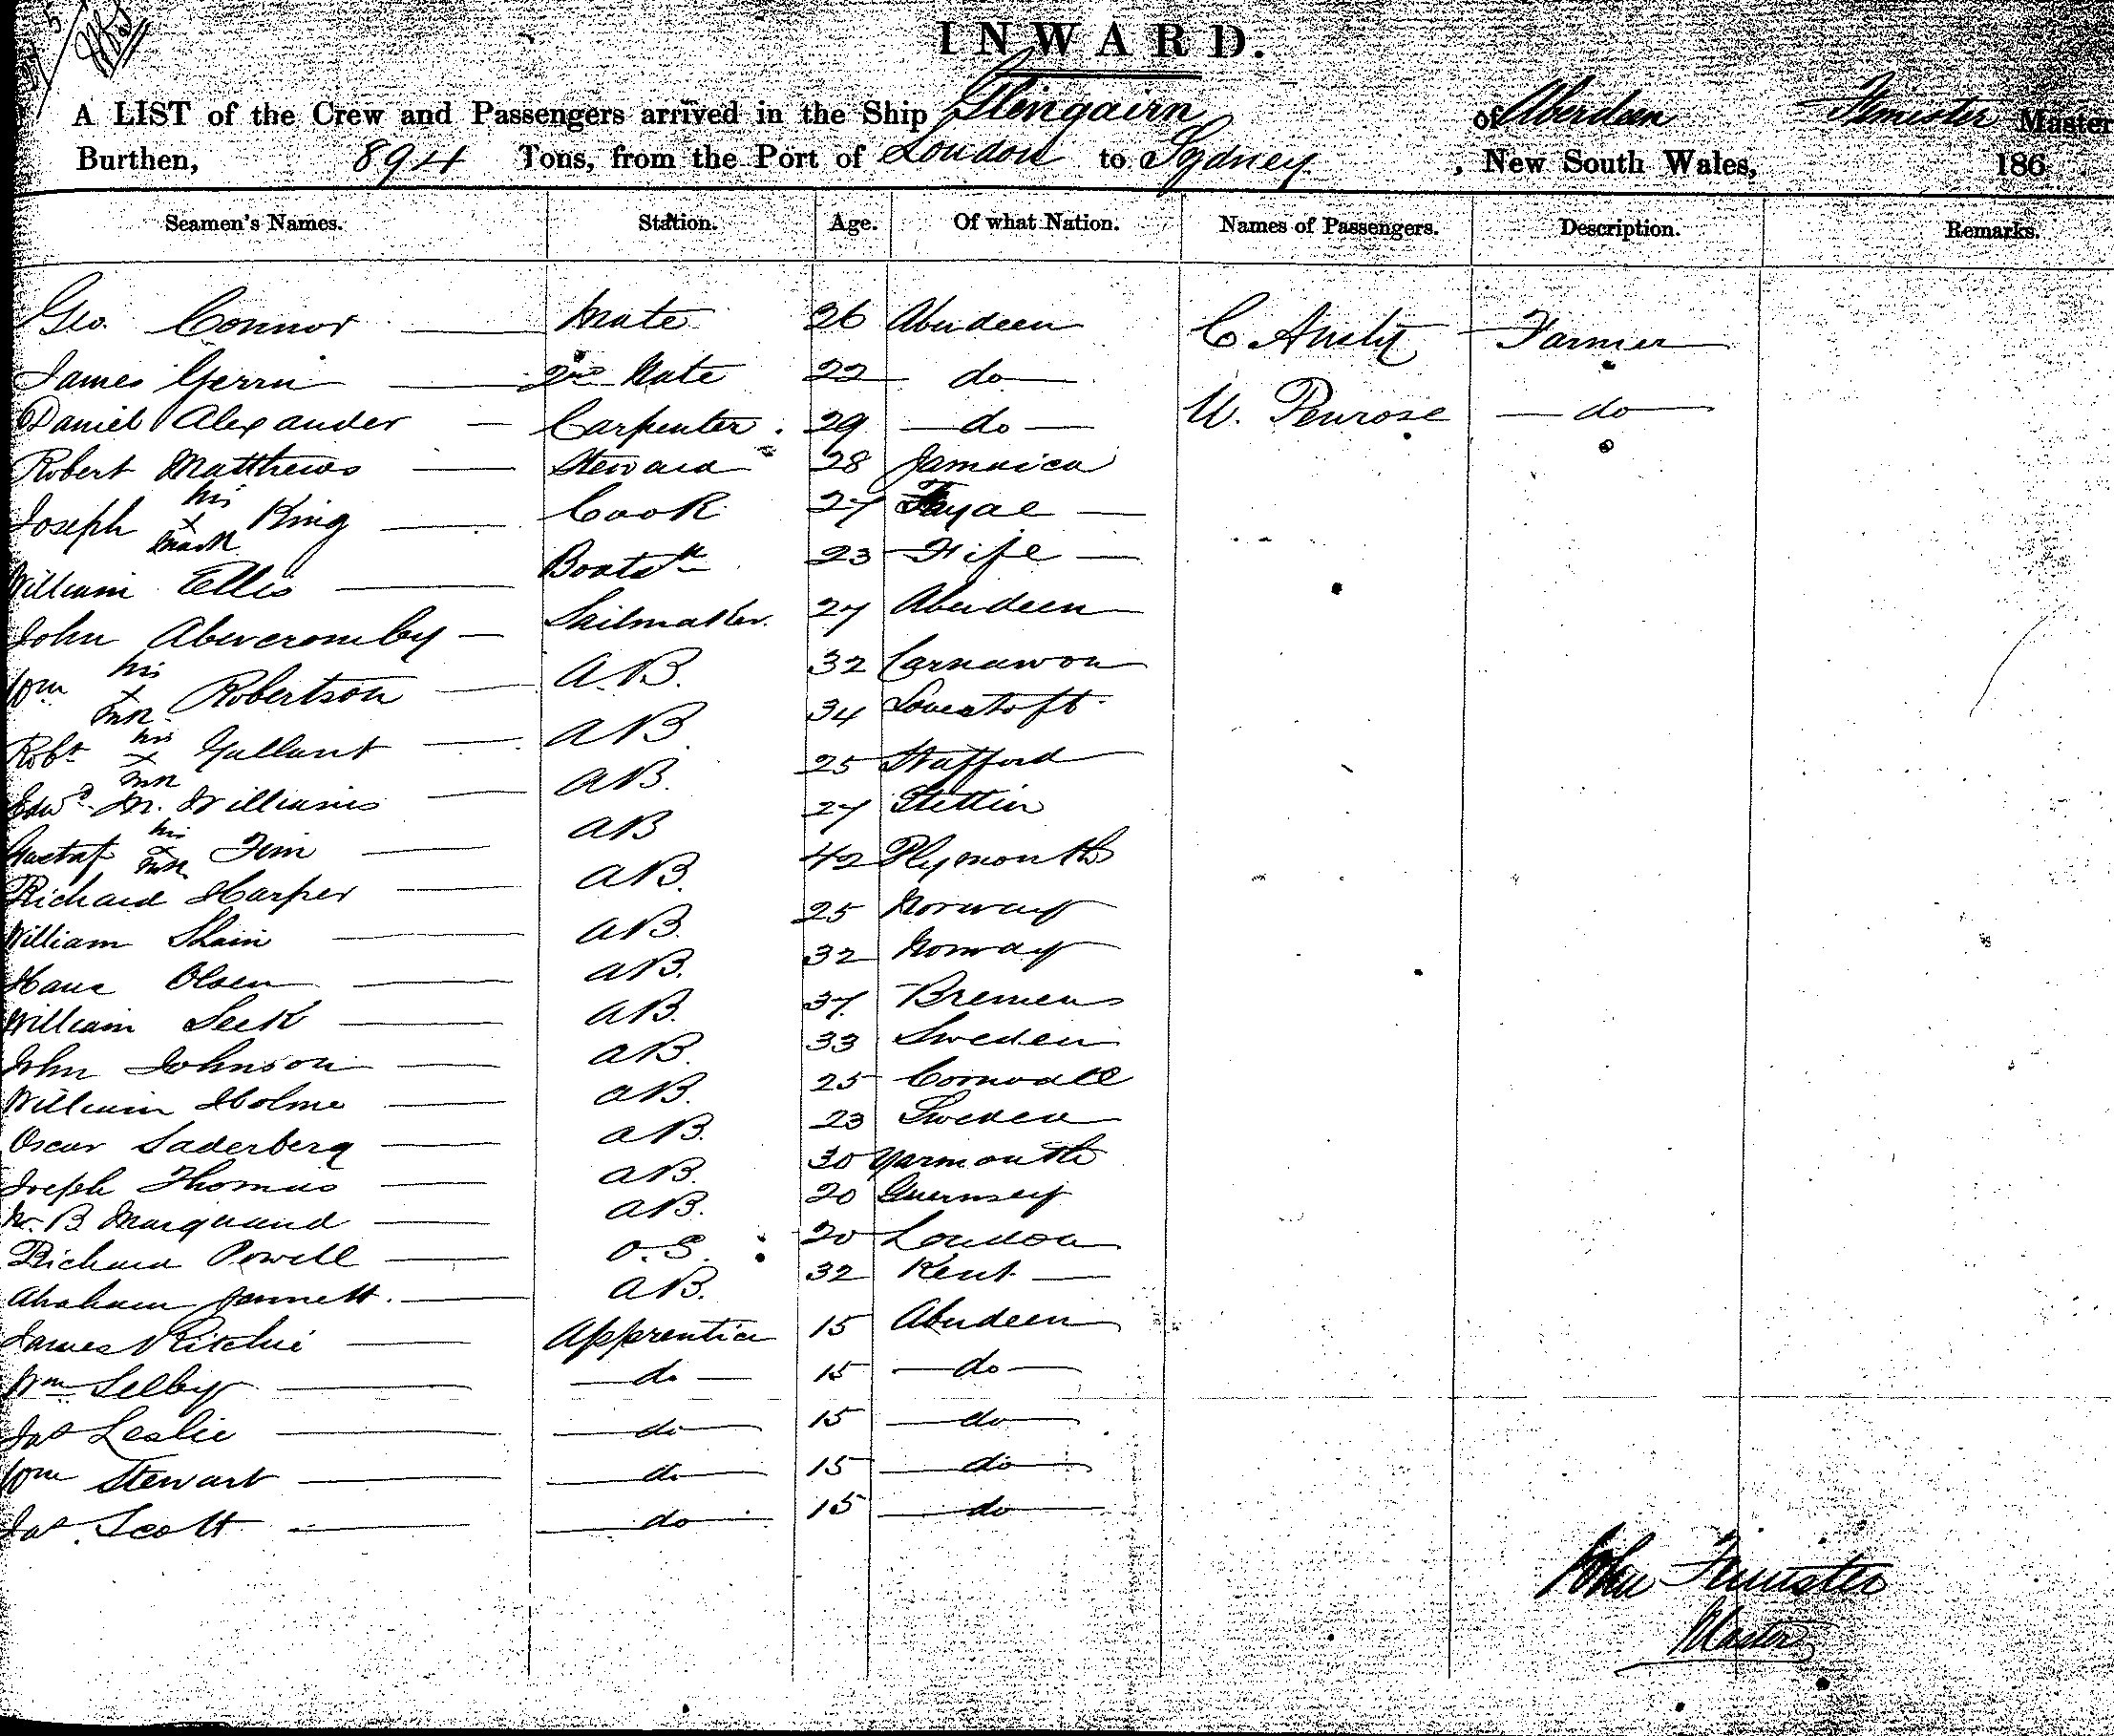 INWARD.
A LIST of the Crew and Passengers arrived in the Ship Glengairn of Aberdeen Femister Master
Burthen, 894 Tons, from the Port of London to Sydney, New South Wales, 186
Seamen's Names. Station. Age. Of what Nation. Names of Passengers. Description. Remarks.
Geo. Connor Mate 26 Aberdeen C Farmer
James 2nd Mate 22 do W. Penrose do
Daniel Alexander Carpenter. 29 do
Robert Matthews Steward 28 Jamaica
Joseph his x mark King Cook 27 Fayal
William Ellis Boatsn 23 Fife
John Abercromby Sailmaker. 27 Aberdeen
Wm his x mk Robertson A.B. 32 Carnarvon
Robt his x mk Gallant AB. 34 Lowestoft
Edwd. M. Williams AB. 25 Stafford
Gustaf his x mk AB 27 Stettin
Richard Harper AB. 42 Plymouth
William AB. 25 Norway
Hans Olsen AB. 32 Norway
William AB. 37 Bremen
John Johnson AB. 33 Sweden
William Holme AB. 25 Cornwall
Oscar Saderberg AB. 23 Sweden
Joseph Thomas AB. 30 Yarmouth
B Marquand AB. 20 Guernsey
Richard Powell O.S. 20 London
Abraham AB. 32 Kent
James Ritchie Apprentice 15 Aberdeen
Wm Selby do 15 do
Jas Leslie do 15 do
Wm Stewart do 15 do
Jas. Scott do 15 do
John Femister
Master